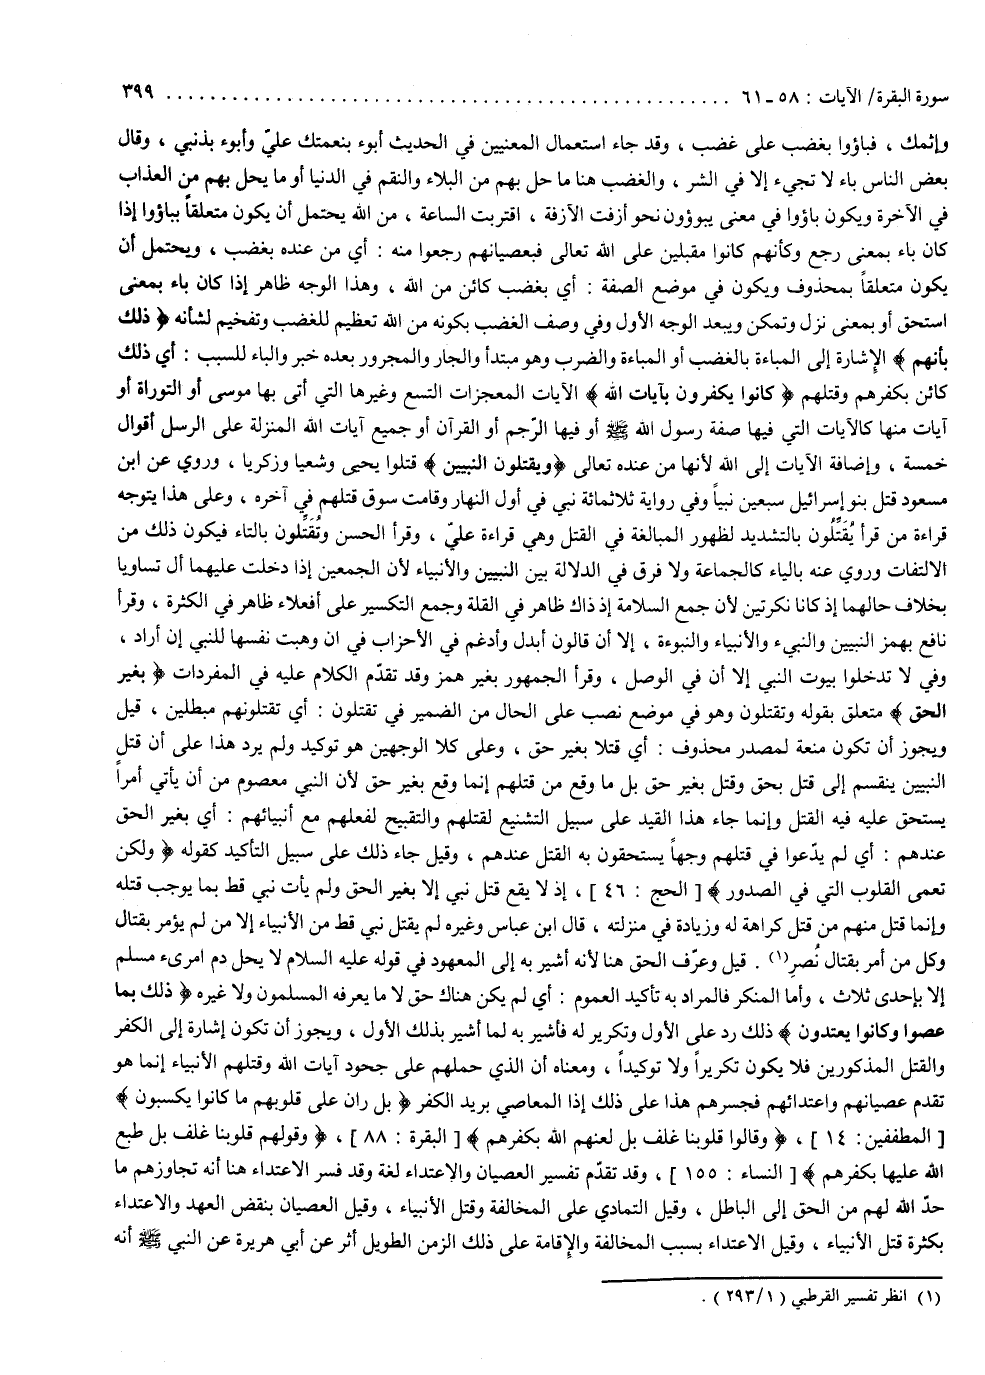 سورة البقرة/ الآيات : ٥٨ ـ ٦١ .................................................... ٣٩٩
وإثمك ، فباؤوا بغضب على غضب ، وقد جاء استعمال المعنيين في الحديث أبوء بنعمتك عليّ وأبوء بذنبي ، وقال
بعض الناس باء لا تجيء إلا في الشر ، والغضب هنا ما حل بهم من البلاء والنقم في الدنيا أو ما يحل بهم من العذاب
في الآخرة ويكون باؤوا في معنى يبوؤون نحو أزفت الآزفة ، اقتربت الساعة ، من الله يحتمل أن يكون متعلقاً بباؤوا إذا
كان باء بمعنى رجع وكأنهم كانوا مقبلين على الله تعالى فبعصيانهم رجعوا منه : أي من عنده بغضب ، ويحتمل أن
يكون متعلقاً بمحذوف ويكون في موضع الصفة : أي بغضب كائن من الله ، وهذا الوجه ظاهر إذا كان باء بمعنى
استحق أو بمعنى نزل وتمكن ويبعد الوجه الأول وفي وصف الغضب بكونه من الله تعظيم للغضب وتفخيم لشأنه ﴿ ذلك
بأنهم ﴾ الإشارة إلى المباءة بالغضب أو المباءة والضرب وهو مبتدأ والجار والمجرور بعده خبر والباء للسبب : أي ذلك
كائن بكفرهم وقتلهم ﴿ كانوا يكفرون بآيات الله ﴾ الآيات المعجزات التسع وغيرها التي أتى بها موسى أو التوراة أو
آيات منها كالآيات التي فيها صفة رسول الله ﷺ أو فيها الرّجم أو القرآن أو جميع آيات الله المنزلة على الرسل أقوال
خمسة ، وإضافة الآيات إلى الله لأنها من عنده تعالى ﴿ويقتلون النبيين ﴾ قتلوا يحيى وشعيا وزكريا ، وروي عن ابن
مسعود قتل بنو إسرائيل سبعين نبياً وفي رواية ثلاثمائة نبي في أول النهار وقامت سوق قتلهم في آخره ، وعلى هذا يتوجه
قراءة من قرأ يُقَتِّلُون بالتشديد لظهور المبالغة في القتل وهي قراءة عليّ ، وقرأ الحسن وتُقَتِّلون بالتاء فيكون ذلك من
الالتفات وروي عنه بالياء كالجماعة ولا فرق في الدلالة بين النبيين والأنبياء لأن الجمعين إذا دخلت عليهما أل تساويا
بخلاف حالهما إذ كانا نكرتين لأن جمع السلامة إذ ذاك ظاهر في القلة وجمع التكسير على أفعلاء ظاهر في الكثرة ، وقرأ
نافع بهمز النبيين والنبيء والأنبياء والنبوءة ، إلا أن قالون أبدل وأدغم في الأحزاب في ان وهبت نفسها للنبي إن أراد ،
وفي لا تدخلوا بيوت النبي إلا أن في الوصل ، وقرأ الجمهور بغير همز وقد تقدّم الكلام عليه في المفردات ﴿ بغير
الحق ﴾ متعلق بقوله وتقتلون وهو في موضع نصب على الحال من الضمير في تقتلون : أي تقتلونهم مبطلين ، قيل
ويجوز أن تكون منعة لمصدر محذوف : أي قتلا بغير حق ، وعلى كلا الوجهين هو توكيد ولم يرد هذا على أن قتل
النبيين ينقسم إلى قتل بحق وقتل بغير حق بل ما وقع من قتلهم إنما وقع بغير حق لأن النبي معصوم من أن يأتي أمراً
يستحق عليه فيه القتل وإنما جاء هذا القيد على سبيل التشنيع لقتلهم والتقبيح لفعلهم مع أنبيائهم : أي بغير الحق
عندهم : أي لم يدّعوا في قتلهم وجهاً يستحقون به القتل عندهم ، وقيل جاء ذلك على سبيل التأكيد كقوله ﴿ ولكن
تعمى القلوب التي في الصدور ﴾ [ الحج : ٤٦ ] ، إذ لا يقع قتل نبي إلا بغير الحق ولم يأت نبي قط بما يوجب قتله
وإنما قتل منهم من قتل كراهة له وزيادة في منزلته ، قال ابن عباس وغيره لم يقتل نبي قط من الأنبياء إلا من لم يؤمر بقتال
وكل من أمر بقتال نُصر(١) . قيل وعرّف الحق هنا لأنه أشير به إلى المعهود في قوله عليه السلام لا يحل دم امرىء مسلم
إلا بإحدى ثلاث ، وأما المنكر فالمراد به تأكيد العموم : أي لم يكن هناك حق لا ما يعرفه المسلمون ولا غيره ﴿ ذلك بما
عصوا وكانوا يعتدون ﴾ ذلك رد على الأول وتكرير له فأشير به لما أشير بذلك الأول ، ويجوز أن تكون إشارة إلى الكفر
والقتل المذكورين فلا يكون تكريراً ولا توكيداً ، ومعناه أن الذي حملهم على جحود آيات الله وقتلهم الأنبياء إنما هو
تقدم عصيانهم واعتدائهم فجسرهم هذا على ذلك إذا المعاصي بريد الكفر ﴿ بل ران على قلوبهم ما كانوا يكسبون ﴾
[ المطففين: ١٤ ] ، ﴿ وقالوا قلوبنا غلف بل لعنهم الله بكفرهم ﴾ [ البقرة : ٨٨ ] ، ﴿ وقولهم قلوبنا غلف بل طبع
الله عليها بكفرهم ﴾ [ النساء : ١٥٥ ] ، وقد تقدّم تفسير العصيان والاعتداء لغة وقد فسر الاعتداء هنا أنه تجاوزهم ما
حدّ الله لهم من الحق إلى الباطل ، وقيل التمادي على المخالفة وقتل الأنبياء ، وقيل العصيان بنقض العهد والاعتداء
بكثرة قتل الأنبياء ، وقيل الاعتداء بسبب المخالفة والإقامة على ذلك الزمن الطويل أثر عن أبي هريرة عن النبي ﷺ أنه
(١) انظر تفسير القرطبي ( ٢٩٣/١ ) .